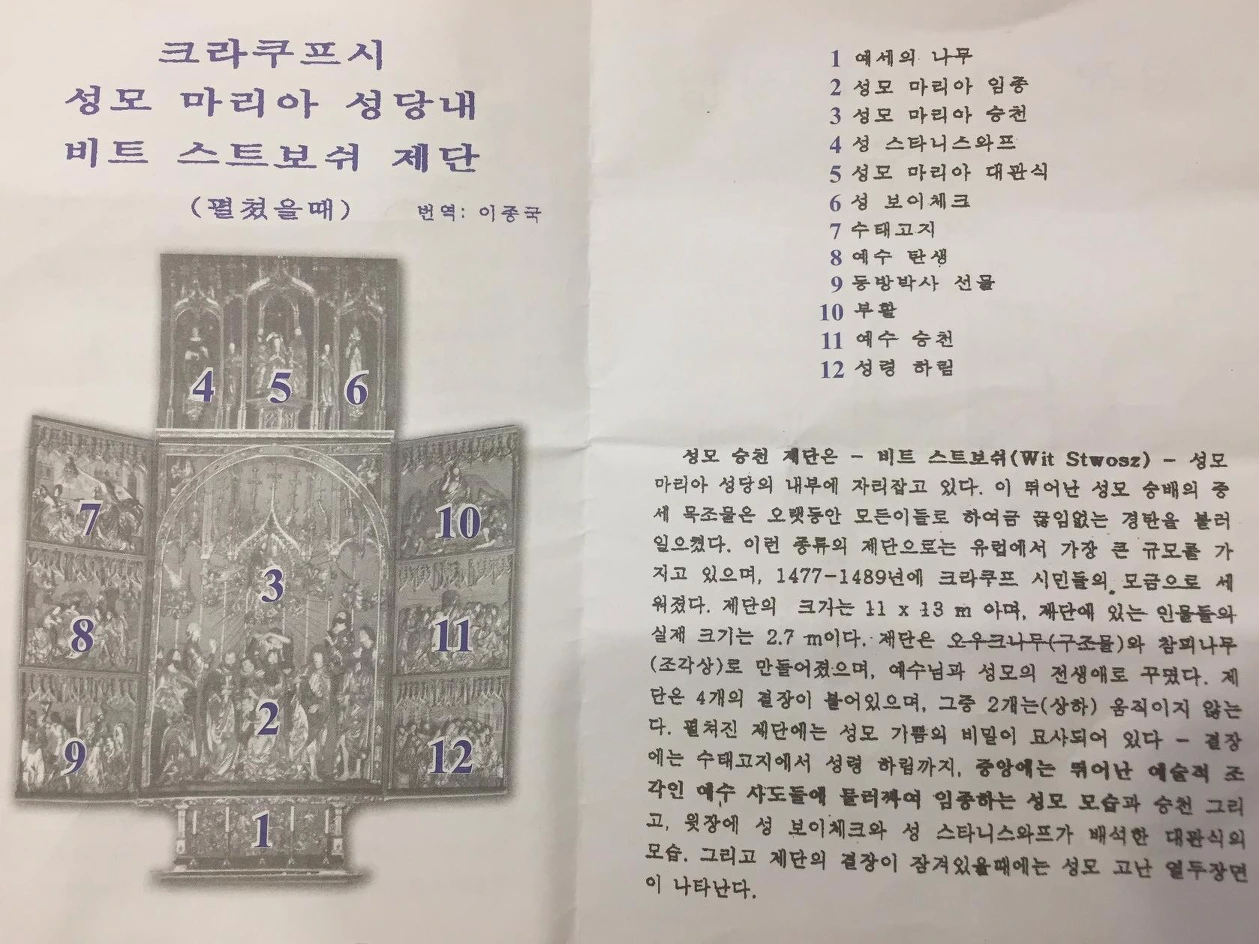 크라쿠프시
성모 마리아 성당내
비트 스트보쉬 제단
(펼쳤을때) 번역: 이종국
4 5 6
7 10
3
8 11
2
9 12
1
1 예세의 나무
2 성모 마리아 임종
3 성모 마리아 승천
4 성 스타니스와프
5 성모 마리아 대관식
6 성 보이체크
7 수태고지
8 예수 탄생
9 동방박사 선물
10 부활
11 예수 승천
12 성령 하림
성모 승천 제단은 - 비트 스트보쉬(Wit Stwosz) - 성모
마리아 성당의 내부에 자리잡고 있다. 이 뛰어난 성모 숭배의 중
세 목조물은 오랫동안 모든이들로 하여금 끊임없는 경탄을 불러
일으켰다. 이런 종류의 제단으로는 유럽에서 가장 큰 규모를 가
지고 있으며, 1477-1489년에 크라쿠프 시민들의 모금으로 세
워졌다. 제단의 크기는 11 x 13 m 이며, 제단에 있는 인물들의
실재 크기는 2.7 m이다. 제단은 오우크나무(구조물)와 참피나무
(조각상)로 만들어졌으며, 예수님과 성모의 전생애로 꾸몄다. 제
단은 4개의 곁장이 붙어있으며, 그중 2개는(상하) 움직이지 않는
다. 펼쳐진 제단에는 성모 기쁨의 비밀이 묘사되어 있다 - 곁장
에는 수태고지에서 성령 하림까지, 중앙에는 뛰어난 예술적 조
각인 예수 사도들에 둘러싸여 임종하는 성모 모습과 승천 그리
고, 윗장에 성 보이체크와 성 스타니스와프가 배석한 대관식의
모습. 그리고 제단의 곁장이 잠겨있을때에는 성모 고난 열두장면
이 나타난다.